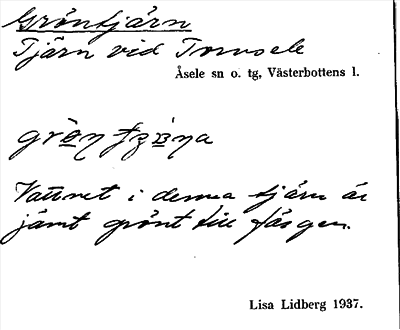 Gröntjärn
Tjärn vid Torvsele
Åsele sn o. tg, Västerbottens l.
Vattnet i denna tjärn är
jämt grönt till färgen.
Lisa Lidberg 1937.